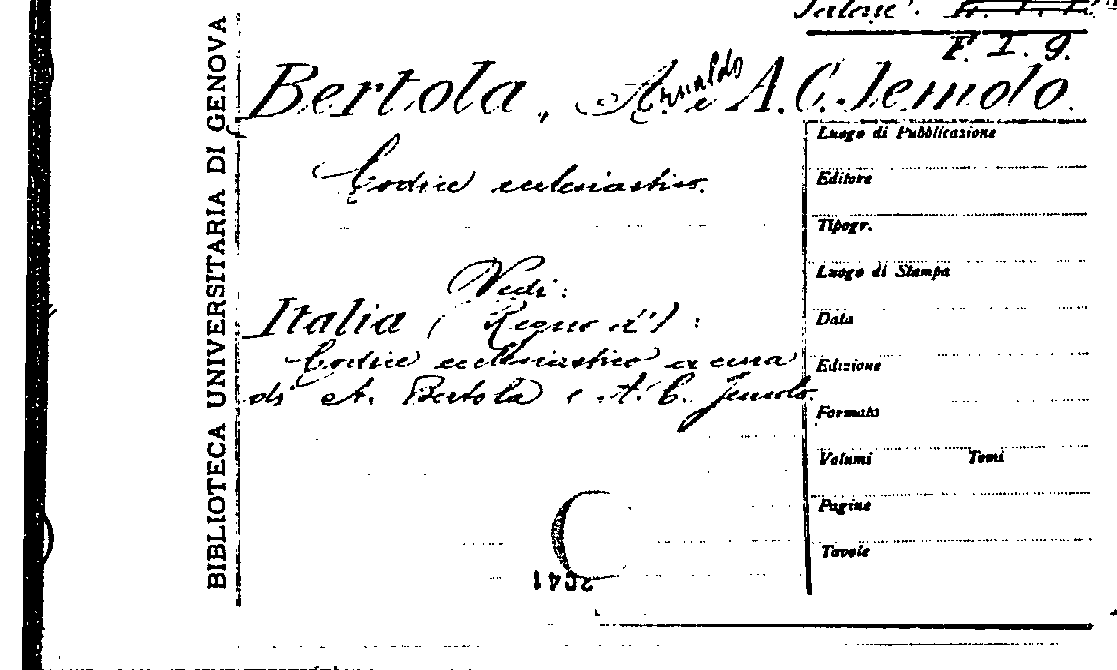 BIBLIOTECA UNIVERSITARIA DI GENOVA
F. I. 9.
Bertola, Arnaldo e A. C. Jemolo.
Codice ecclesiastico.
Vedi:
Italia (Regno d') :
Codice ecclesiastico a cura
di A. Bertola e A. C. Jemolo.
Luogo di Pubblicazione
Editore
Tipogr.
Luogo di Stampa
Data
Edizione
Formato
Volumi Tomi
Pagine
Tavole
2041